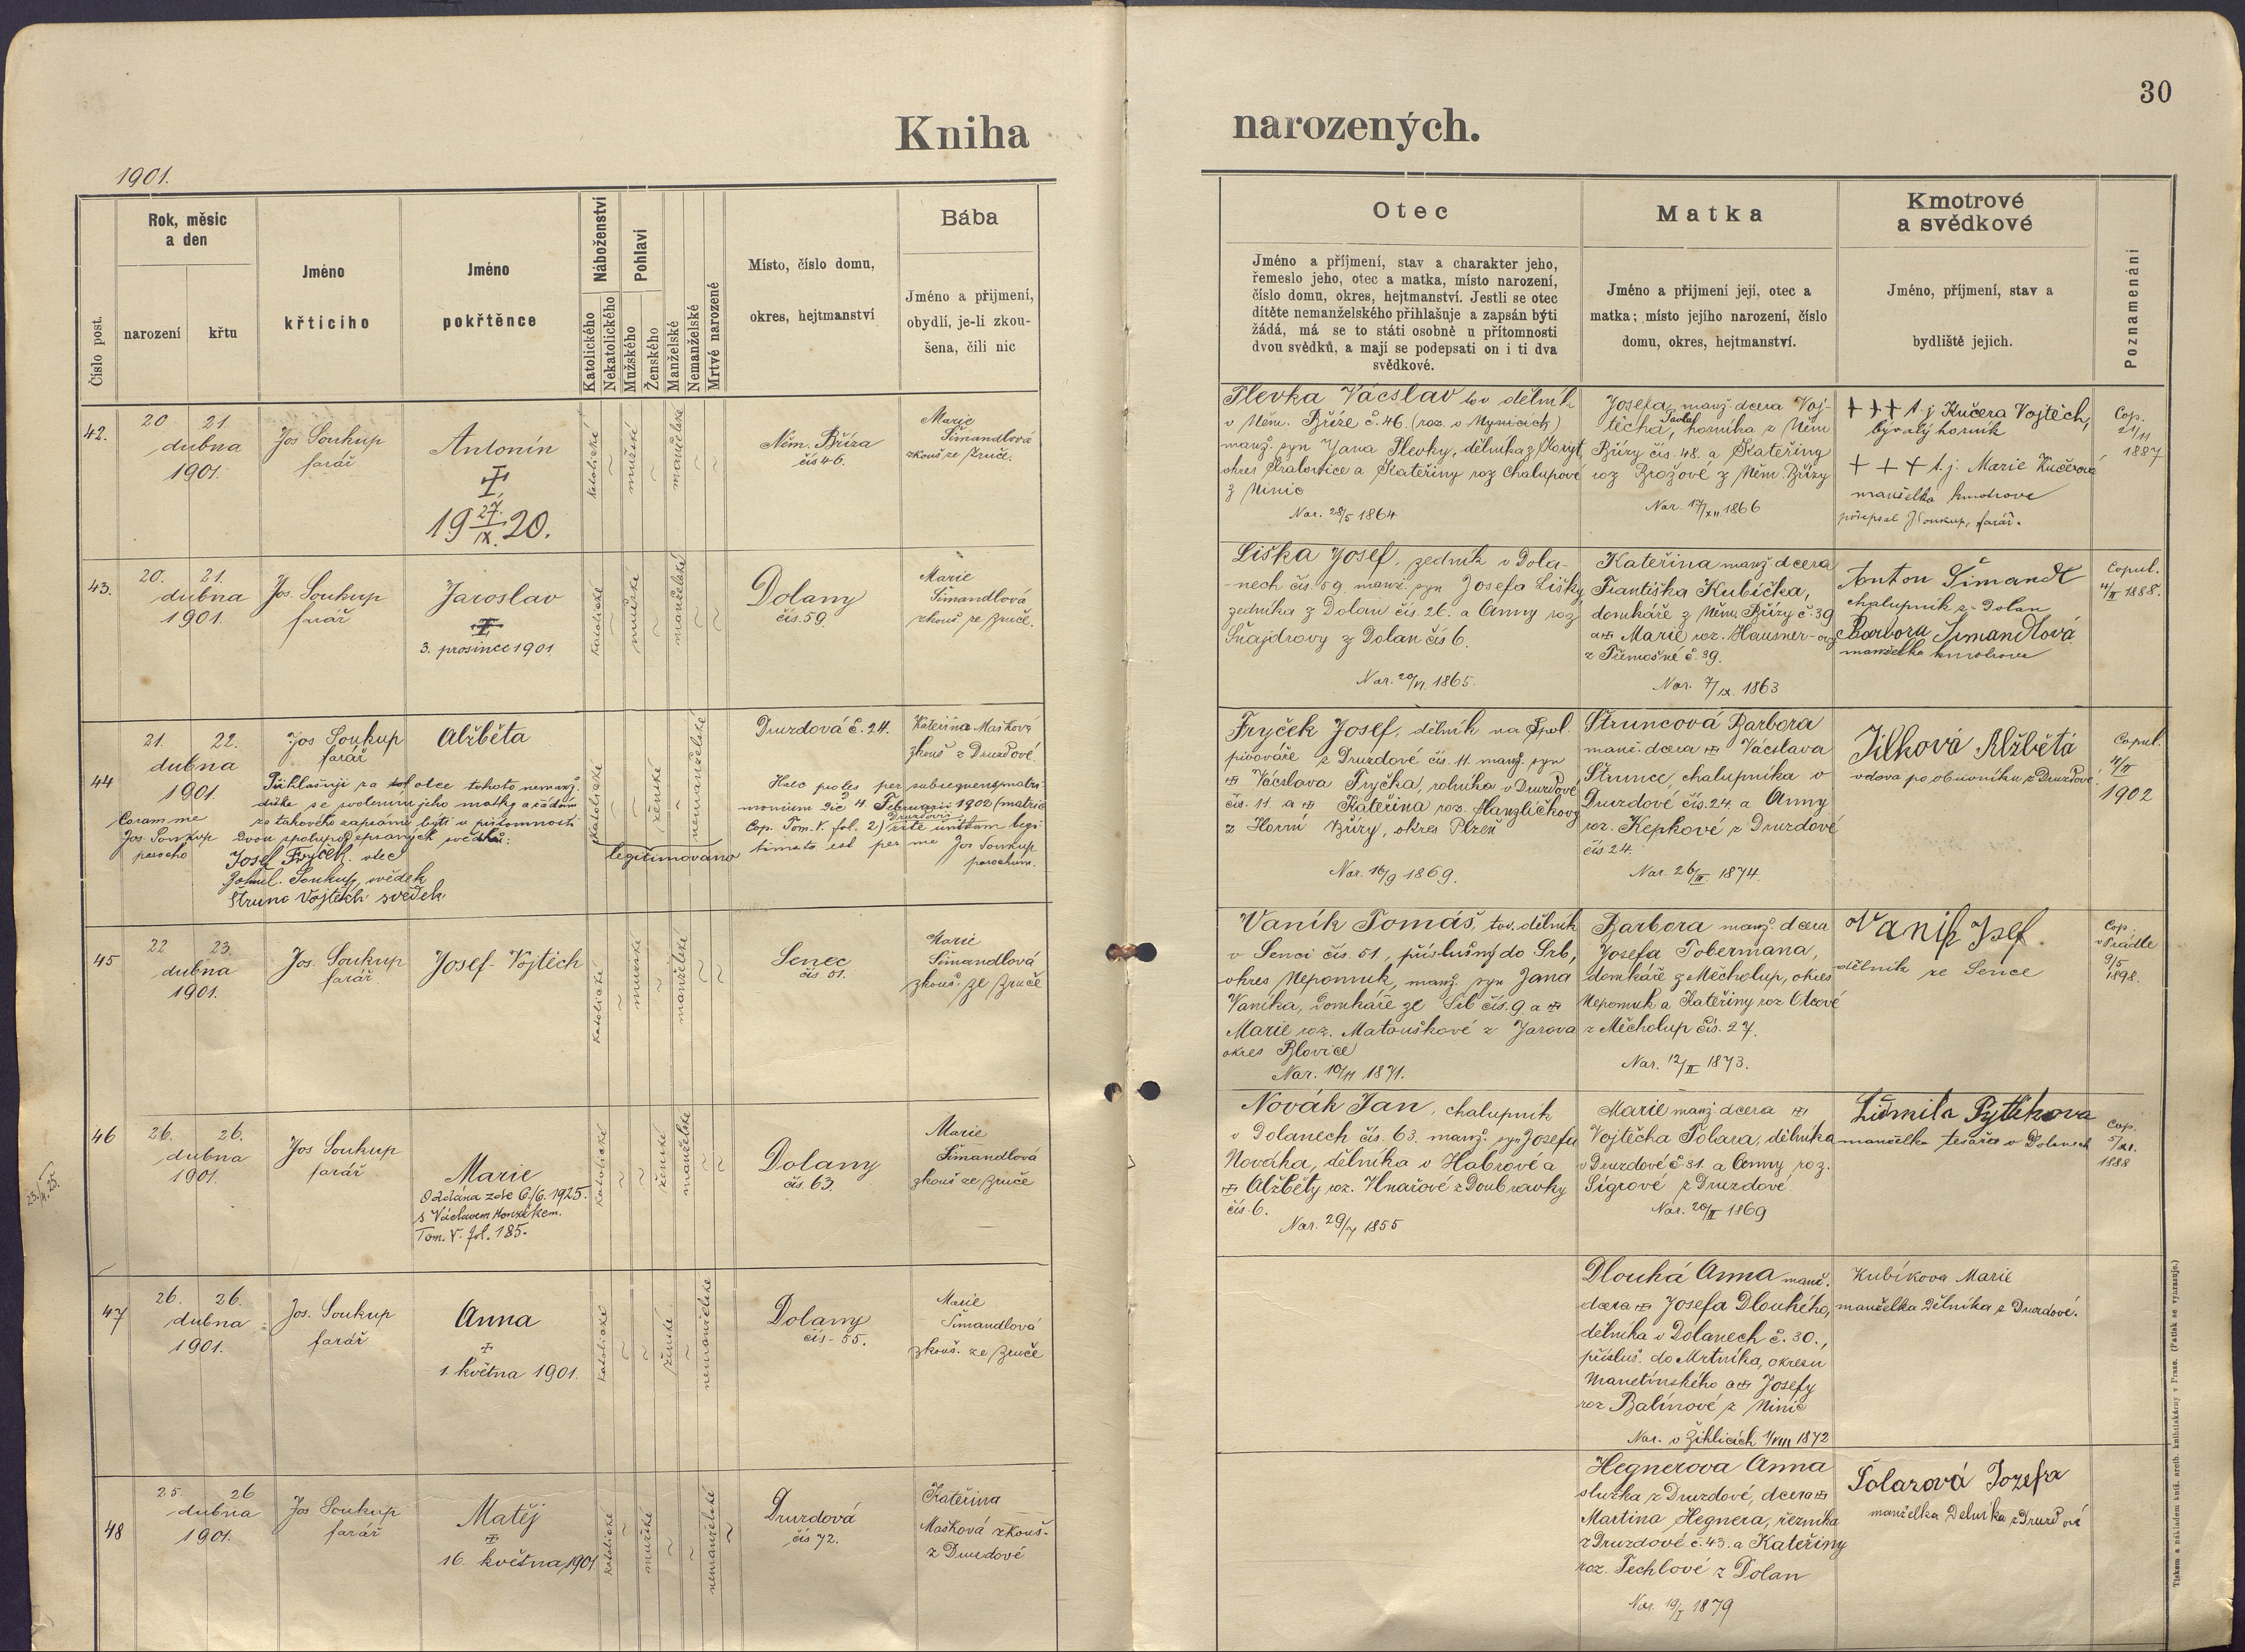 Kniha narozených.
30
1901.
Číslo post.
Rok, měsíc
a den
narození
křtu
Jméno
křtícího
Jméno
pokřtěnce
Náboženství
Katolického
Nekatolického
Pohlaví
Mužského
Ženského
Manželské
Nemanželské
Mrtvě narozené
Místo, číslo domu,
okres, hejtmanství
Bába
Jméno a přijmení,
obydlí, je-li zkou-
šena, čili nic
Otec
Jméno a příjmení, stav a charakter jeho,
řemeslo jeho, otec a matka, místo narození,
číslo domu, okres, hejtmanství. Jestli se otec
dítěte nemanželského přihlašuje a zapsán býti
žádá, má se to státi osobně u přítomnosti
dvou svědků, a mají se podepsati on i ti dva
svědkové.
Matka
Jméno a přijmení její, otec a
matka; místo jejího narození, číslo
domu, okres, hejtmanství.
Kmotrové
a svědkové
Jméno, příjmení, stav a
bydliště jejich.
Poznamenání
42.
20 21.
dubna
1901.
Jos Soukup
farář
Antonín
19 27./IX. 20.
katolické
~
mužské
~
manželské
~
~
Něm. Bříza
čís 46.
Marie
Šimandlová
zkouš ze Zruče.
Plevka Vácslav tov dělník
v Něm. Bříze č. 46. (roz. v Mysicích)
manž. syn Jana Plevky, dělníka z Koryt
okres Kralovice a Kateřiny roz Chalupové
z Ninic
Nar. 28/5 1864
Josefa, manž. dcera Voj-
těcha, horníka z Něm
Břízy čís. 48. a Kateřiny
roz Brožové z Něm. Břízy
Nar. 17/XII 1866
+++ t. j Kučera Vojtěch,
bývalý horník
+++ t. j. Marie Kučerová
manželka kmotrova
připsal JSoukup, farář.
Cop.
21/11
1887
43.
20. 21.
dubna
1901.
Jos. Soukup
farář
Jaroslav
3. prosince 1901
katolické
~
mužské
~
manželské
~
~
Dolany
čís. 59.
Marie
Šimandlová
zkouš ze Zruče.
Liška Josef, zedník v Dola-
-nech čís. 59. manž. syn Josefa Lišky,
zedníka z Dolan čís. 26. a Anny roz
Šnajdrovy z Dolan čís 6.
Nar. 20/VI. 1865.
Kateřina manž. dcera
Františka Kubíčka,
domkáře z Něm. Břízy č. 39
a Marie roz. Hausner-ové
z Třemošné č. 39.
Nar. 7/IX. 1863
Anton Šimandl
chalupník z Dolan
Barbora Šimandlová
manželka kmotrova
Copul.
4/II 1888.
44
21. 22.
dubna
1901.
Jos Soukup
farář
Alžběta
Přihlašuji se za otce tohoto nemanž.
dítka se svolením jeho matky a žádám
za takového zapsáno býti u přítomnosti
dvou spolupodepsaných svědků:
Coram me
Jos. Soukup
parocho
Josef Fryček. otec
Bohusl. Soukup, svědek
Strunc Vojtěch svědek
katolické
~
~
ženské
~
nemanželské
legitimováno
Druzdová č. 24.
Kateřina Mašková
zkouš z Druzdové.
Haec proles per subsequens matri-
monium die 4. Februarii 1902 (matric
Cop. Tom. V. fol. 2) rite unitam legi
timata est per me Jos Soukup
parochum.
Fryček Josef, dělník na spol.
pivováře z Druzdové čís. 11. manž. syn
Vácslava Fryčka, rolníka v Druzdové
čís. 11. a Kateřina roz. Hanzlíčkovy
z Horní Břízy, okres Plzeň
Nar. 16/9 1869.
Struncová Barbora
manž. dcera Vácslava
Strunce, chalupníka v
Druzdové čís. 24. a Anny
roz. Kepkové z Druzdové
čís. 24.
Nar. 26/III 1874.
Jílková Alžběta
vdova po obuvníku z Druzdové.
Copul.
4/II
1902
45
22 23.
dubna
1901.
Jos. Soukup
farář
Josef-Vojtěch
katolické
~
mužské
~
manželské
~
~
Senec
čís 51.
Marie
Šimandlová
zkouš. ze Zruče
Vaník Tomáš, tov. dělník
v Senci čís. 51., příslušný do Srb,
okres Nepomuk, manž. syn Jana
Vaníka, domkáře ze Srb čís. 9. a
Marie roz. Matouškové z Jarova
okres Blovice
Nar. 10/11 1871.
Barbora manž. dcera
Josefa Tobermana,
domkáře z Měcholup, okres
Nepomuk a Kateřiny roz Uldové
z Měcholup čís. 27.
Nar. 12/II 1873.
Vaník Josef
dělník ze Sence
Cop
v Prádle
9/5
1898.
46
26. 26.
dubna
1901.
Jos Soukup
farář
Marie
Oddána zde 6./6. 1925.
s Václavem Horákem.
Tom. V. fol. 185.
katolické
~
~
ženské
manželské
~
~
Dolany
čís. 63.
Marie
Šimandlová
zkouš ze Zruče
Novák Jan, chalupník
v Dolanech čís. 63. manž. syn Josefa
Nováka, dělníka v Habrové a
Alžběty roz. Hnařové z Doubravky
čís. 6.
Nar. 29/7 1855
Marie manž. dcera
Vojtěcha Tolara, dělníka
v Druzdové č. 31. a Anny roz.
Sigrové z Druzdové
Nar. 20/II 1869
Lidmila Pytlikova
manželka tesaře v Dolanech
Cop.
5/XI.
1888
47
26. 26.
dubna
1901.
Jos. Soukup
farář
Anna
1. května 1901.
katolické
~
~
ženské
~
nemanželské
Dolany
čís-55.
Marie
Šimandlová
zkouš. ze Zruče
Dlouhá Anna manž.
dcera Josefa Dlouhého,
dělníka v Dolanech č. 30.,
přísluš. do Mrtníka, okresu
Manetínského a Josefy
roz Balínové z Ninic
Nar. v Žihlicích 1/VIII 1872
Kubíkova Marie
manželka dělníka z Druzdové.
48
25. 26
dubna
1901.
Jos Soukup
farář
Matěj
16. května 1901
katolické
~
mužské
~
~
nemanželské
~
Druzdová
čís 72.
Kateřina
Mašková zkouš-
z Druzdové
Hegnerova Anna
služka z Druzdové, dcera
Martina Hegnera, řezníka
z Druzdové č. 43. a Kateřiny
roz. Techlové z Dolan
Nar. 19/I 1879
Tolarová Jozefa
manželka Delníka z Druzdové
Tiskem a nákladem kníž. arcib. knihtiskárny v Praze. (Patisk se vyhrazuje.)